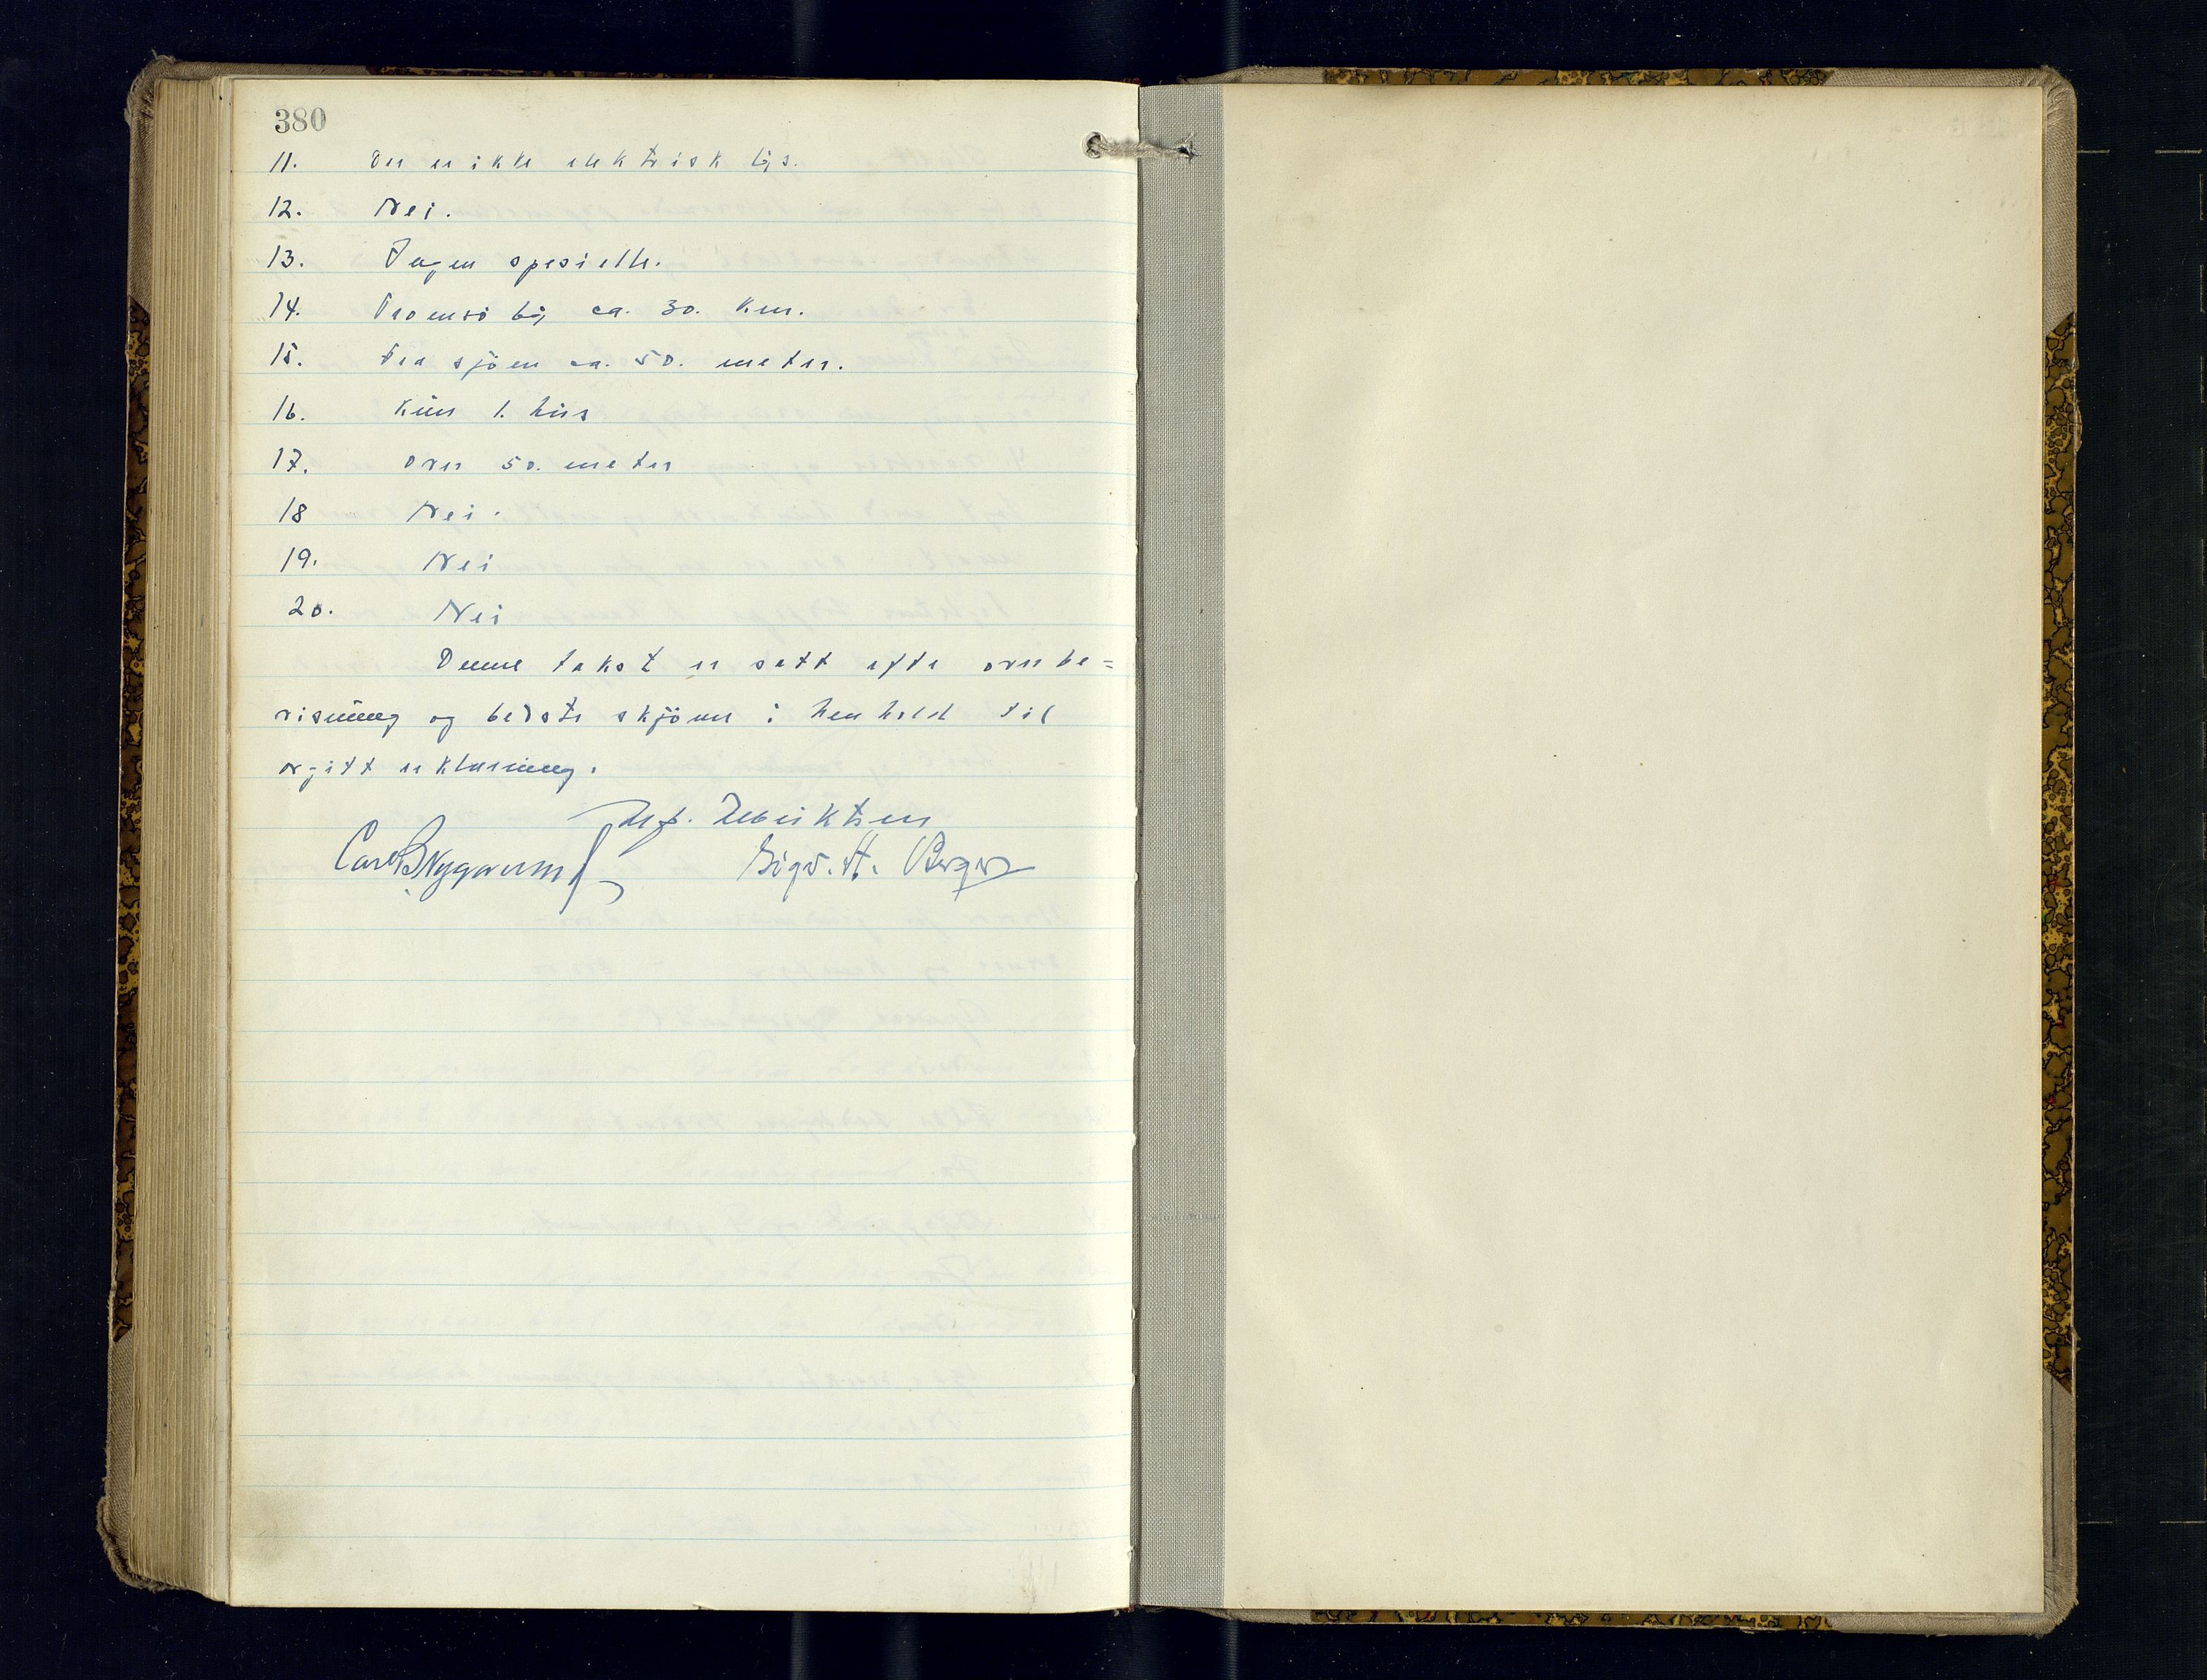 380
11. Der er ikke elektrisk lys.
12. Nei.
13. Ingen spesielle.
14. Tromsö by ca. 30. km.
15. Fra sjöen ca. 50. meter.
16. Kun 1. hus
17. over 50. meter
18 Nei.
19. Nei
20. Nei
Denne takst er satt efte overbe=
visning og bedste skjönn i henhold til
avgitt erklæring.
Henriktsen
Sigv. H. Berger